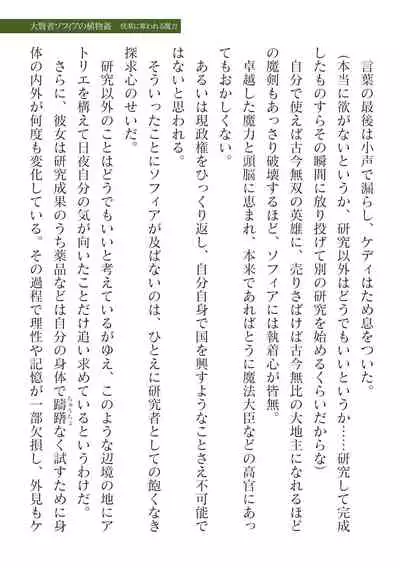 大賢者ソフィアの植物姦 快楽に奪われる魔力
言葉の最後は小声で漏らし、ケディはため息をついた。
(本当に欲がないというか、研究以外はどうでもいいというか……研究して完成
したものすらその瞬間に放り投げて別の研究を始めるくらいだからな)
自分で使えば古今無双の英雄に、売りさばけば古今無比の大地主になれるほど
の魔剣もあっさり破壊するほど、ソフィアには執着心が皆無。
卓越した魔力と頭脳に恵まれ、本来であればとうに魔法大臣などの高官にあっ
てもおかしくない。
あるいは現政権をひっくり返し、自分自身で国を興すようなことさえ不可能で
はないと思われる。
そういったことにソフィアが及ばないのは、ひとえに研究者としての飽くなき
探求心のせいだ。
研究以外のことはどうでもいいと考えているがゆえ、このような辺境の地にア
トリエを構えて日夜自分の気が向いたことだけ追い求めているというわけだ。
さらに、彼女は研究成果のうち薬品などは自分の身体で躊躇なく試すために身
体の内外が何度も変化している。その過程で理性や記憶が一部欠損し、外見もケ